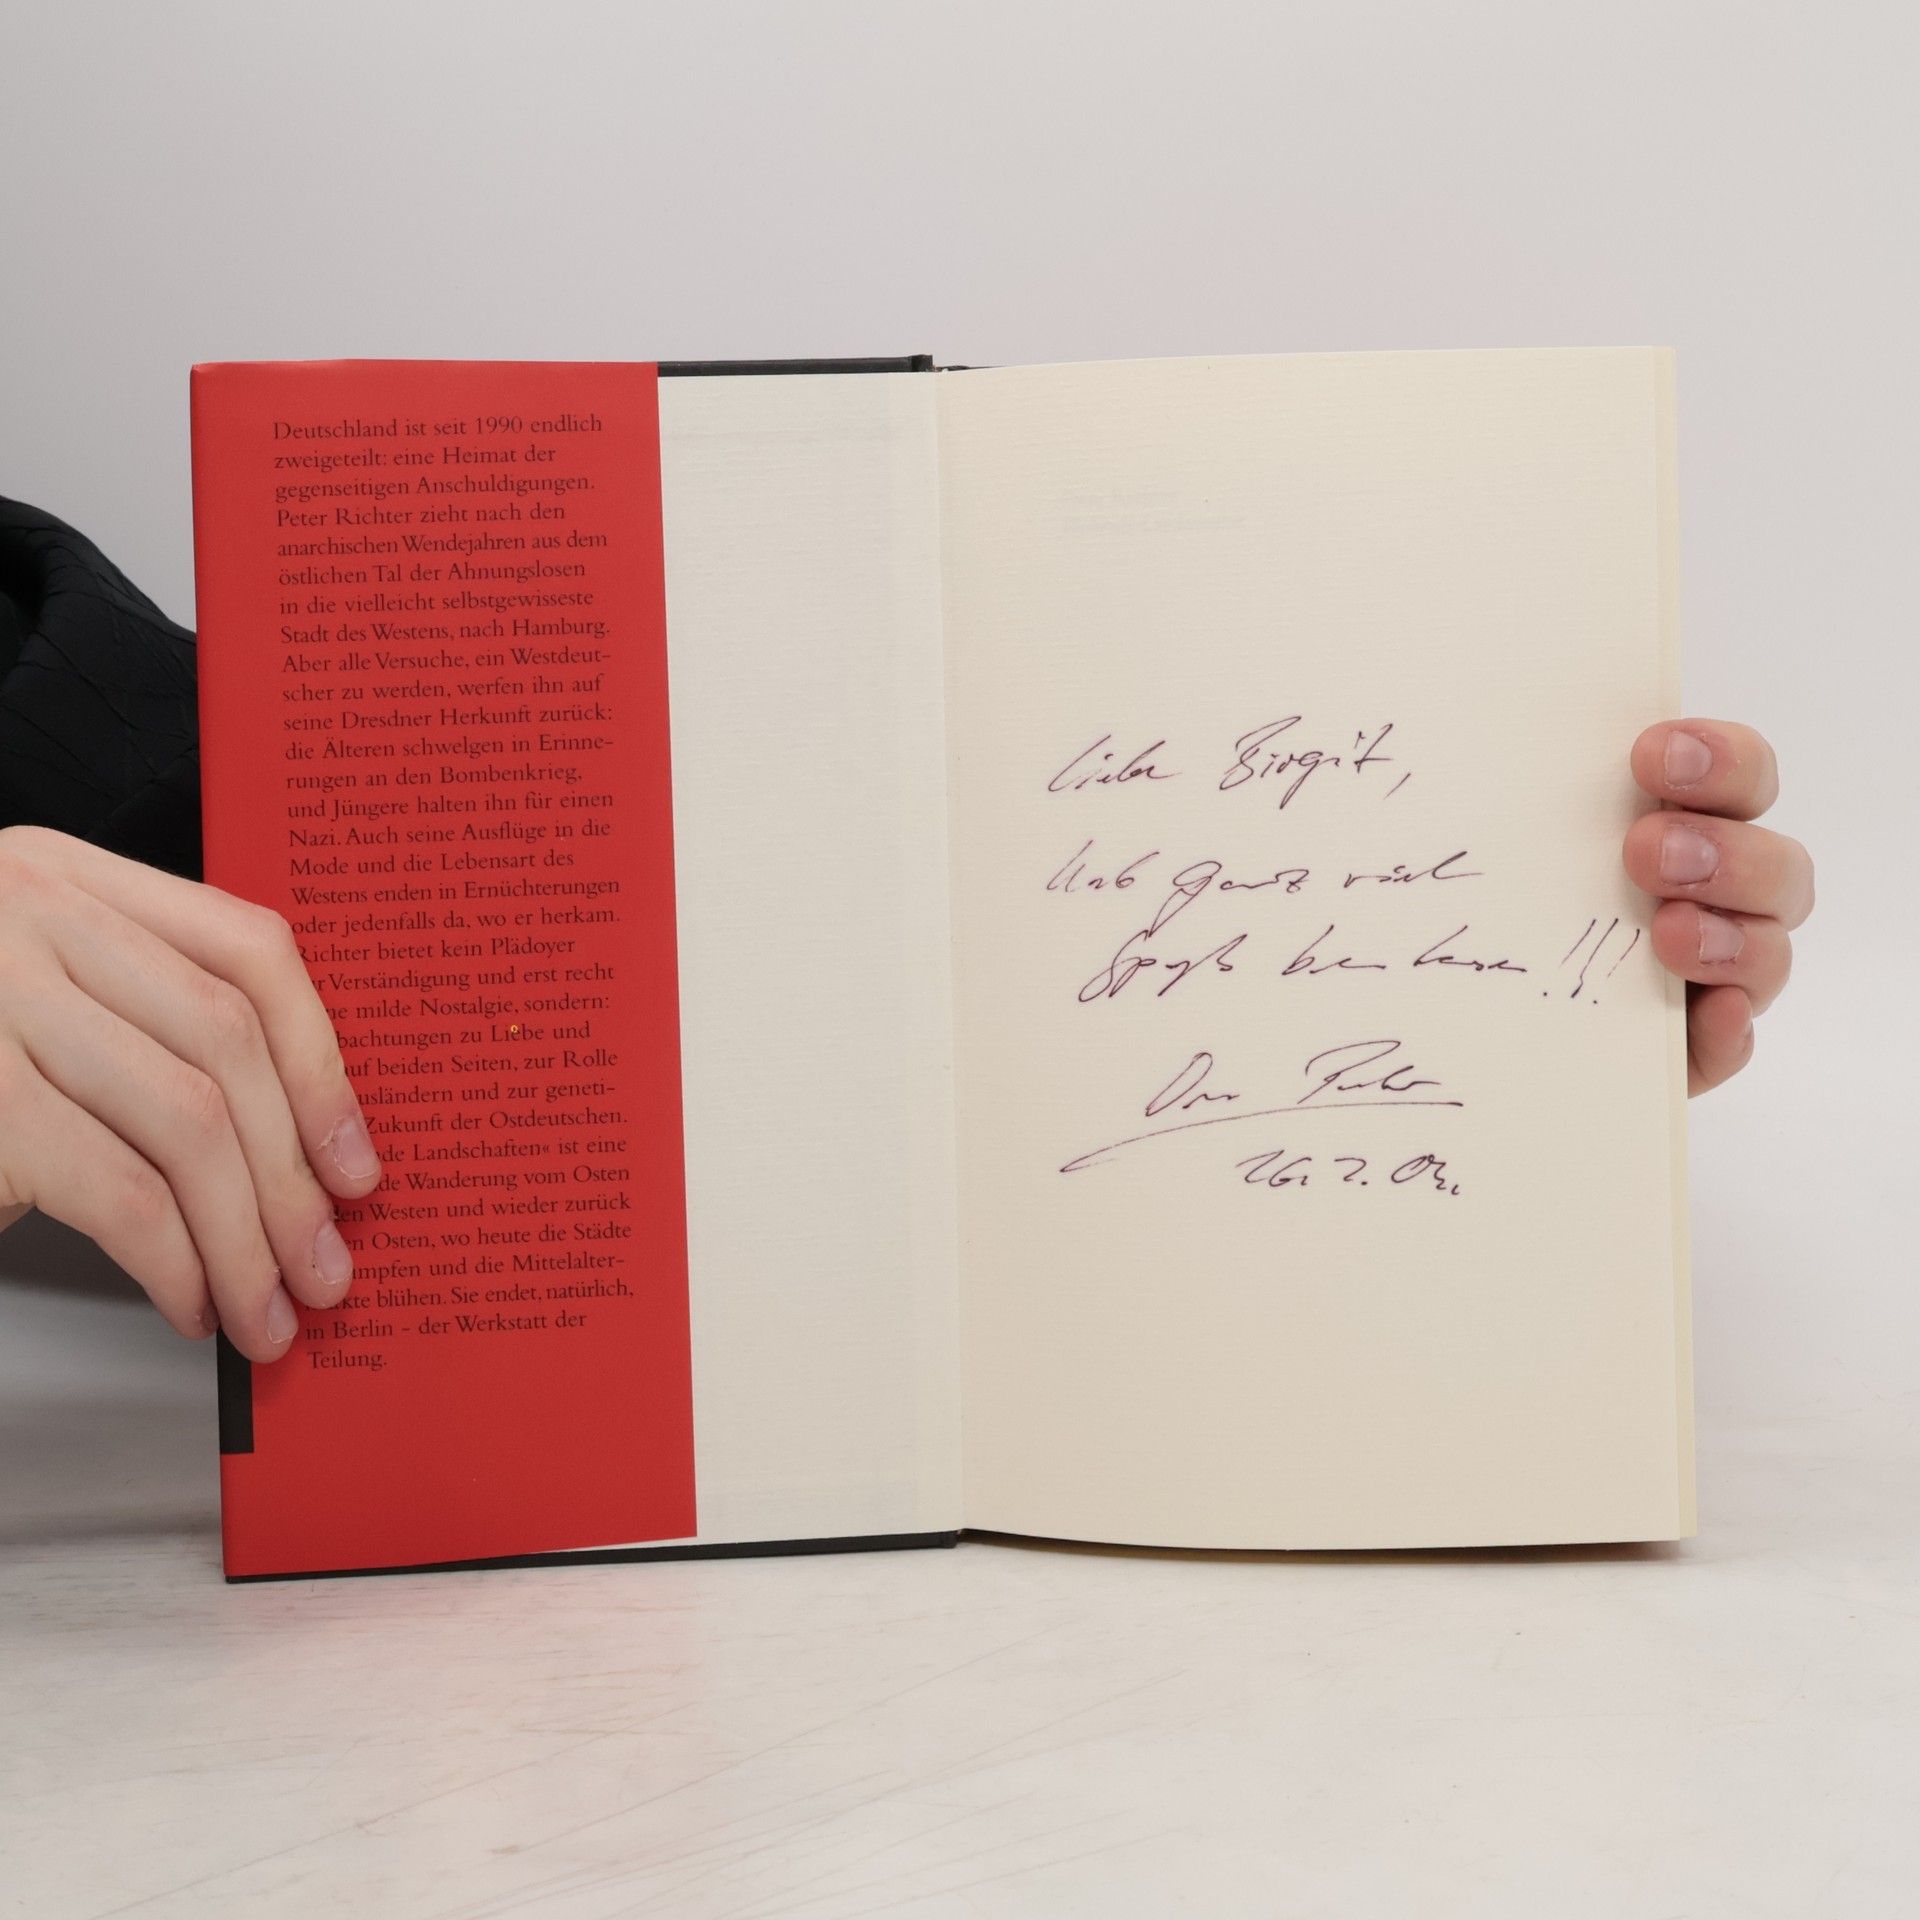 Deutschland ist seit 1990 endlich
zweigeteilt: eine Heimat der
gegenseitigen Anschuldigungen.
Peter Richter zieht nach den
anarchischen Wendejahren aus dem
östlichen Tal der Ahnungslosen
in die vielleicht selbstgewisseste
Stadt des Westens, nach Hamburg.
Aber alle Versuche, ein Westdeut-
scher zu werden, werfen ihn auf
seine Dresdner Herkunft zurück:
die Älteren schwelgen in Erinne-
rungen an den Bombenkrieg,
und Jüngere halten ihn für einen
Nazi. Auch seine Ausflüge in die
Mode und die Lebensart des
Westens enden in Ernüchterungen
oder jedenfalls da, wo er herkam.
Richter bietet kein Plädoyer
Verständigung und erst recht
milde Nostalgie, sondern:
bachtungen zu Liebe und
auf beiden Seiten, zur Rolle
usländern und zur geneti-
Zukunft der Ostdeutschen.
Landschaften« ist eine
Wanderung vom Osten
den Westen und wieder zurück
Osten, wo heute die Städte
mpfen und die Mittelalter-
märkte blühen. Sie endet, natürlich,
in Berlin – der Werkstatt der
Teilung.
Liebe Birgit,
Hab ganz viel
Spaß beim Lesen!!!
26.2.